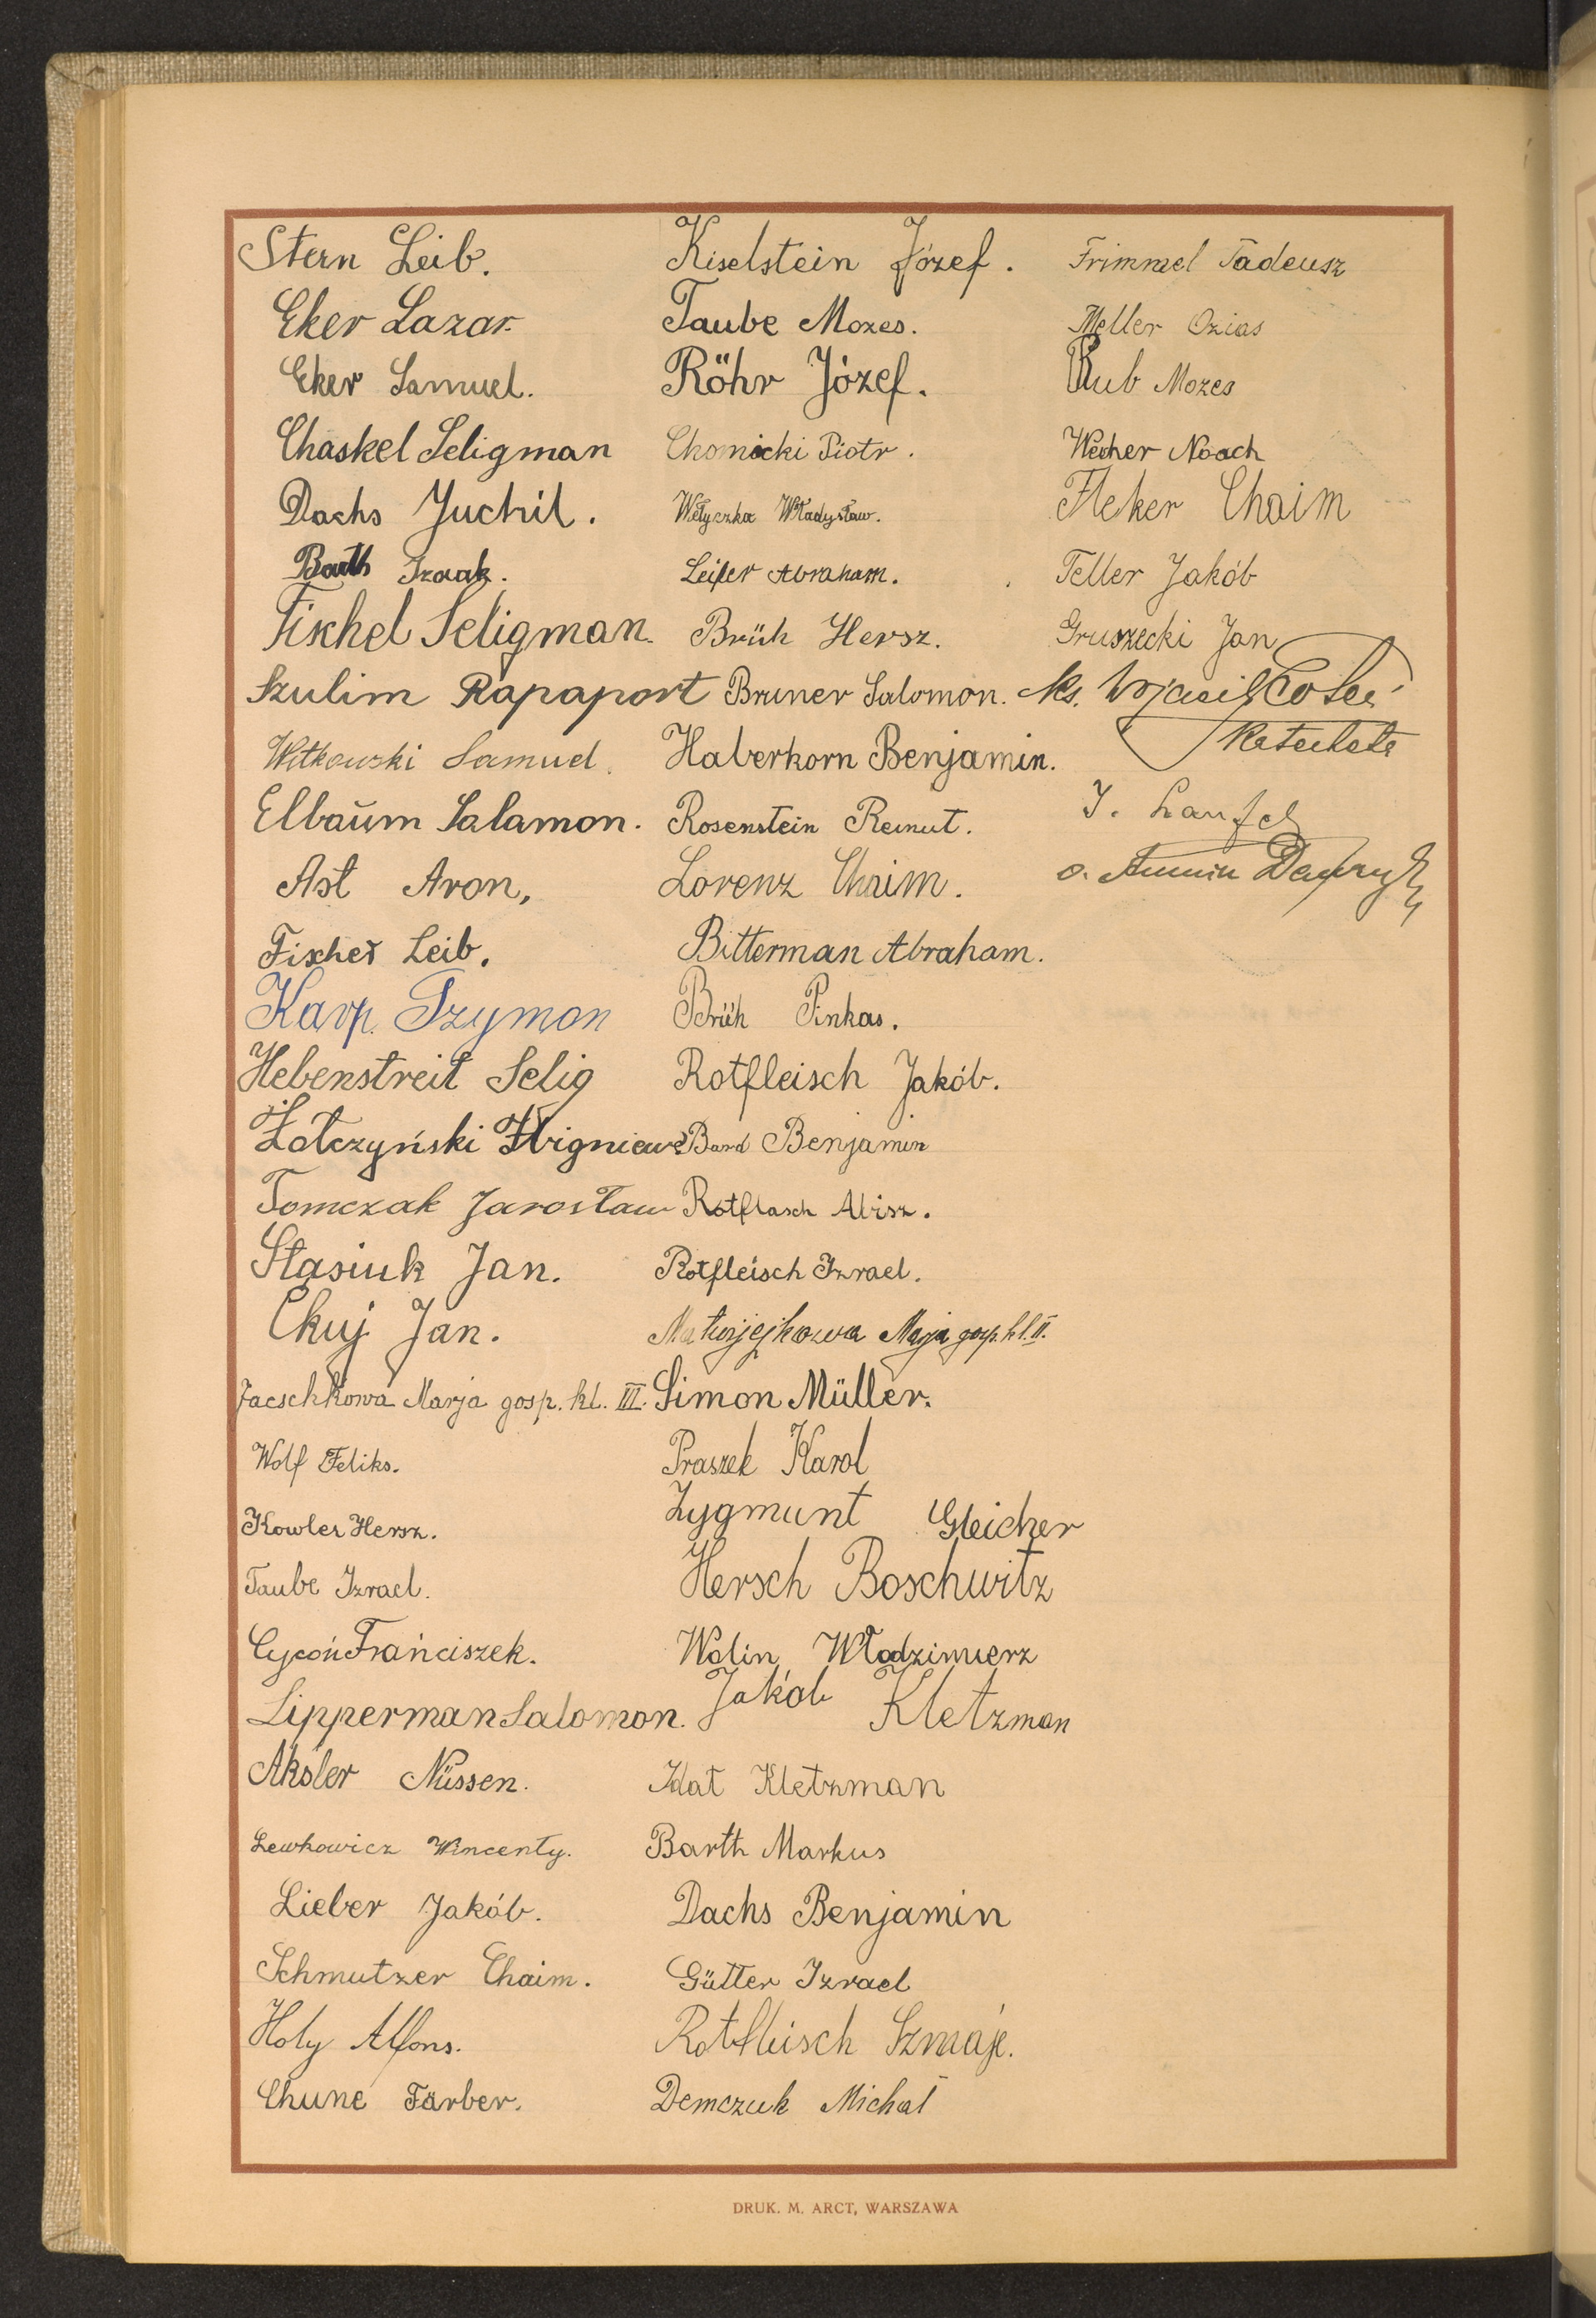 Stern Leib.
Eker Lazar.
Eker Samuel.
Chaskel Seligman
Dachs Juchil.
Barth Izaak.
Fischel Seligman.
Szulim Rapaport
Witkowski Samuel.
Elbaum Salamon.
Ast Aron,
Fischer Leib.
Karp Szymon
Hebenstreit Selig
Żółczyński Zbigniew
Tomczak Jarosław
Stasiuk Jan.
Ckuj Jan.
Jaeschkowa Marja gosp. kl. III.
Wolf Feliks.
Kowler Hersz.
Taube Izrael.
Cycoń Franciszek.
Lipperman Salomon.
Aksler Nüssen.
Lewkowicz Wincenty.
Lieber Jakób.
Schmutzer Chaim.
Holy Alfons.
Chune Färber.
Kiselstein Józef.
Taube Mozes.
Röhr Józef.
Chomicki Piotr.
Wełyczka Władysław.
Leifer Abraham.
Brüh Hersz.
Bruner Salomon.
Haberkorn Benjamin.
Rosenstein Remut.
Lorenz Chaim.
Bitterman Abraham.
Brüh Pinkas.
Rotfleisch Jakób.
Bard Benjamin
Rotflasch Abisz.
Rotfleisch Izrael.
Matwijejkowa Marja gosp. kl. II.
Simon Müller.
Praszek Karol
Zygmunt Gleicher
Hersch Boschwitz
Wolin Włodzimierz
Jakób Kletzman
Kletzman
Barth Markus
Dachs Benjamin
Gütter Izrael
Rotfleisch Szmaje.
Demczuk Michał
Frimmel Tadeusz
Meller Ozias
Rub Mozes
Wecher Noach
Fleker Chaim
Teller Jakób
Gruszecki Jan
ks.
Katecheta
J.
o.
DRUK. M. ARCT, WARSZAWA